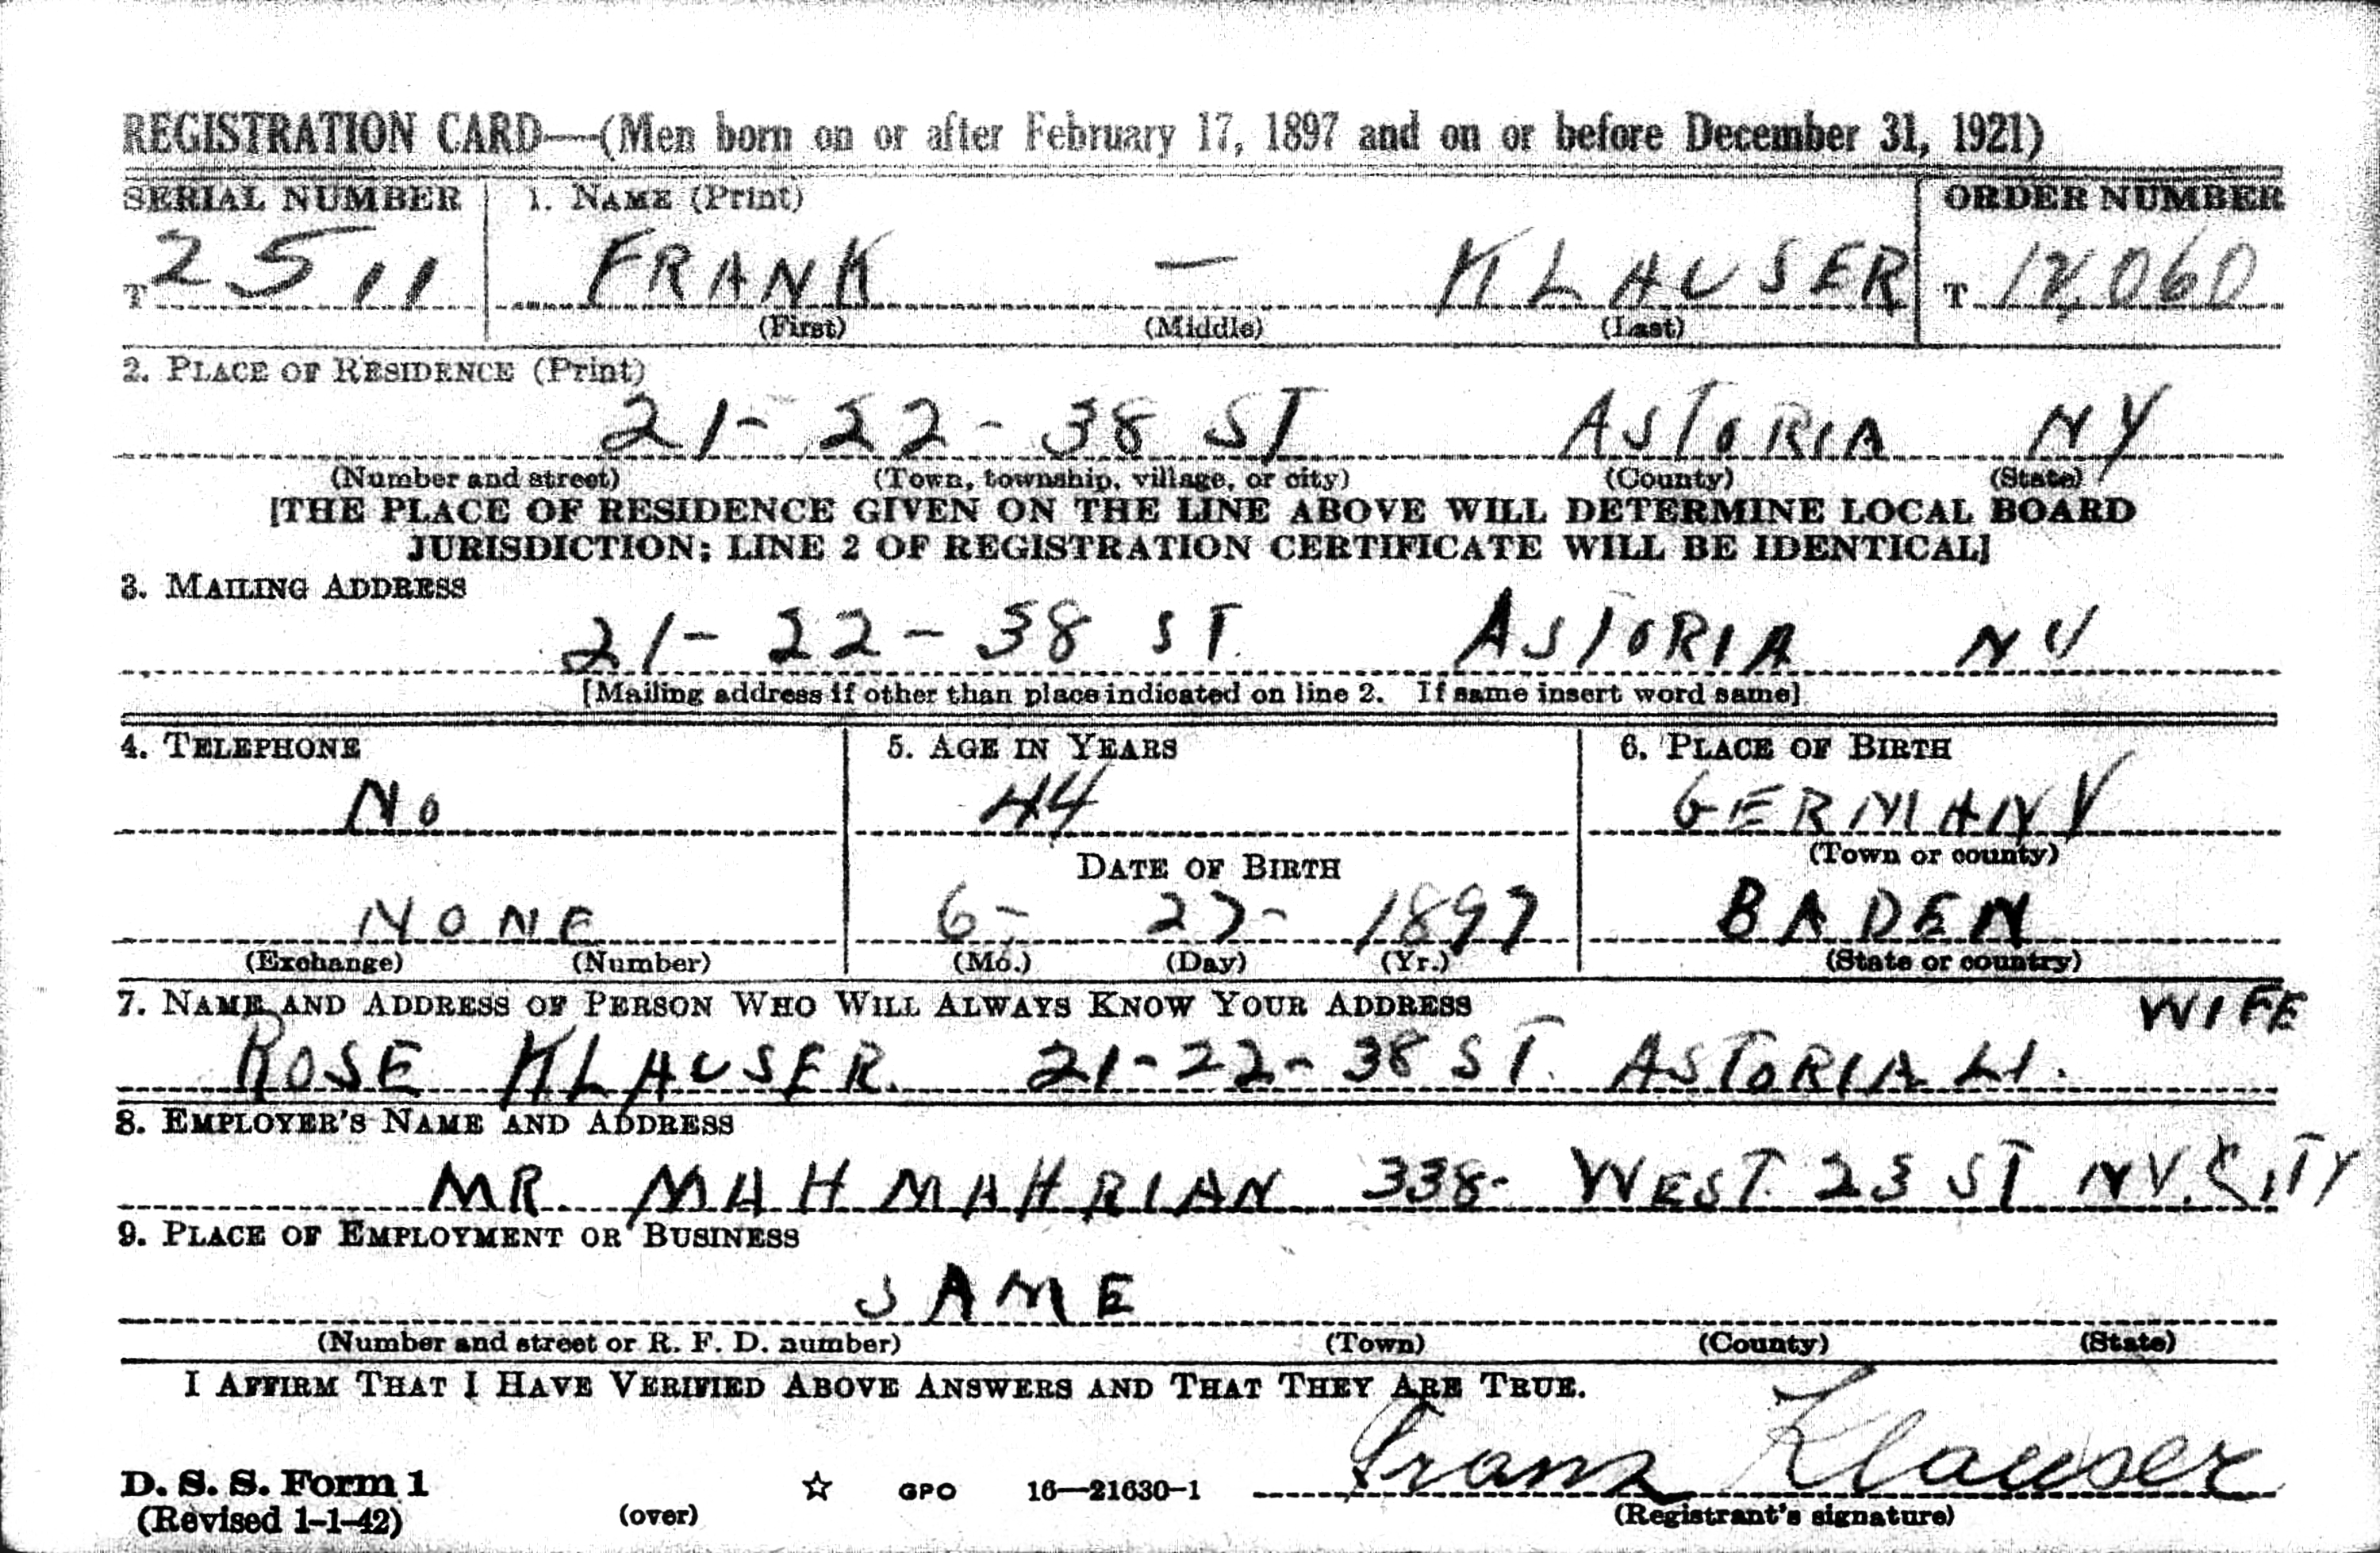 REGISTRATION CARD—(Men born on or after February 17, 1897 and on or before December 31, 1921)
SERIAL NUMBER 1. NAME (Print) ORDER NUMBER
T 2511 FRANK — KLAUSER T 12,060
(First) (Middle) (Last)
2. PLACE OF RESIDENCE (Print)
21-22-38 ST ASTORIA NY
(Number and street) (Town, township, village, or city) (County) (State)
[THE PLACE OF RESIDENCE GIVEN ON THE LINE ABOVE WILL DETERMINE LOCAL BOARD
JURISDICTION; LINE 2 OF REGISTRATION CERTIFICATE WILL BE IDENTICAL]
3. MAILING ADDRESS
21-22-38 ST. ASTORIA NY
[Mailing address if other than place indicated on line 2. If same insert word same]
4. TELEPHONE 5. AGE IN YEARS 6. PLACE OF BIRTH
NO 44 GERMANY
(Town or county)
DATE OF BIRTH
NONE 6- 27- 1897 BADEN
(Exchange) (Number) (Mo.) (Day) (Yr.) (State or country)
7. NAME AND ADDRESS OF PERSON WHO WILL ALWAYS KNOW YOUR ADDRESS WIFE
ROSE KLAUSER. 21-22-38 ST. ASTORIA LI.
8. EMPLOYER'S NAME AND ADDRESS
MR. MAHMAHRIAN 338- WEST. 23 ST NY. CITY
9. PLACE OF EMPLOYMENT OR BUSINESS
SAME
(Number and street or R. F. D. number) (Town) (County) (State)
I AFFIRM THAT I HAVE VERIFIED ABOVE ANSWERS AND THAT THEY ARE TRUE.
Franz Klauser
D. S. S. Form 1 ☆ GPO 16—21630-1
(Revised 1-1-42) (over) (Registrant's signature)